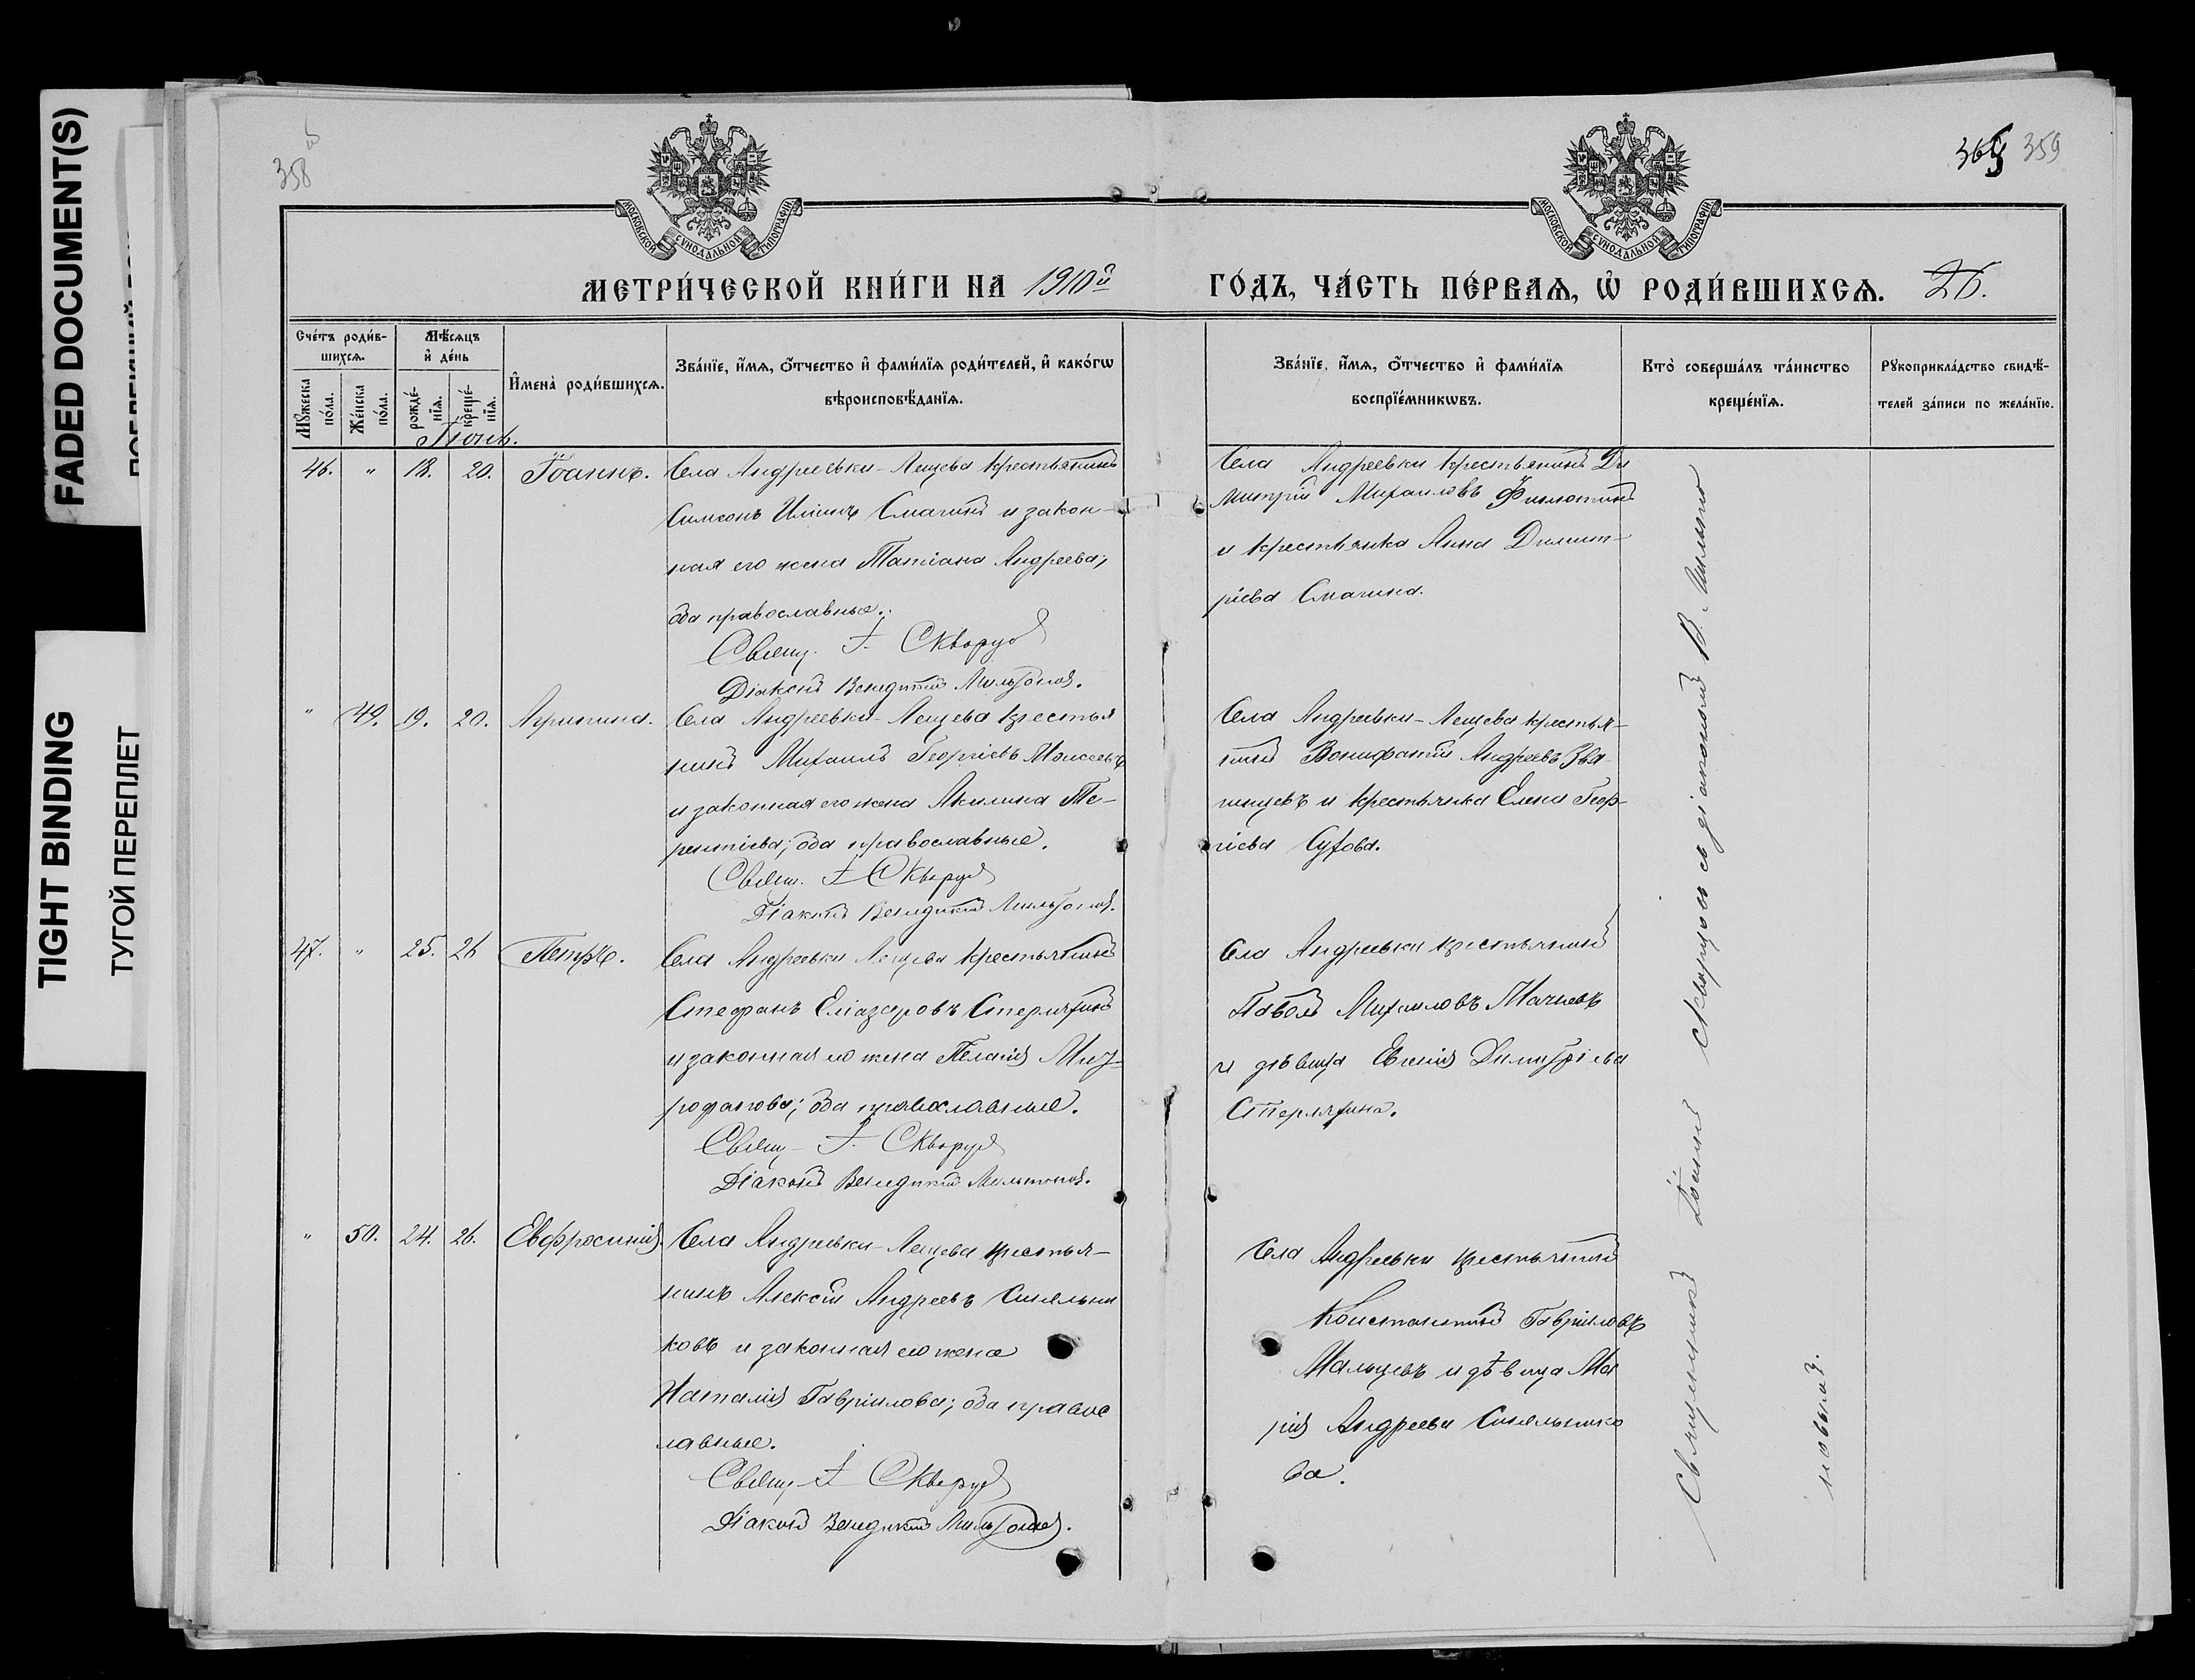 FADED DOCUMENT(S)
TIGHT BINDING
ТУГОЙ ПЕРЕПЛЕТ
358
359
МОСКОВСКОЙ СѴНОДАЛЬНОЙ ТИПОГРАФІИ
МОСКОВСКОЙ СѴНОДАЛЬНОЙ ТИПОГРАФІИ
МЕТРИ́ЧЕСКОЙ КНИ́ГИ НА 1910й
ГО́ДЪ, ЧА́СТЬ ПЕ́РВАѦ, Ѡ҆ РОДИ́ВШИХСѦ. 26.
Сче́тъ роди́в-
шихсѧ.
Мꙋ́жеска
по́ла.
Же́нска
по́ла.
Мѣ́сѧцъ
и҆ де́нь
рожде́-
нїѧ.
креще́-
нїѧ.
И҆мена̀ роди́вшихсѧ.
Зва́нїе, и҆́мѧ, ѻ҆́тчество и҆ фами́лїѧ роди́телей, и҆ како́гѡ
вѣроисповѣ́данїѧ.
Зва́нїе, и҆́мѧ, ѻ҆́тчество и҆ фами́лїѧ
воспрїе́мникѡвъ.
Кто̀ соверша́лъ та́инство
креще́нїѧ.
Рꙋкоприкла́дство свидѣ́-
телей за́писи по жела́нїю.
46. " 18. 20. Іоаннъ.
Села Андреевки-Лещева крестьянинъ
Симеонъ Иліинъ Смагинъ и закон-
ная его жена Татіана Андреева;
оба православные.
Свящ. І. Скворцов
Діаконъ Венедиктъ Мильтонов.
Села Андреевки крестьянинъ Ди
митрій Михаиловъ Филотинъ
и крестьянка Анна Димит-
ріева Смагина.
" 49. 19. 20. Агрипина.
Села Андреевки-Лещева крестья
нинъ Михаилъ Георгіевъ Моисеевъ
и законная его жена Акилина Те-
рентіева; оба православные.
Свящ. І Скворцов
Діаконъ Венедиктъ Мильтонов.
Села Андреевки-Лещева крестья-
нинъ Вонифатій Андреевъ Зва
гинцевъ и крестьянка Елена Геор-
гіева Сухова.
47. " 25. 26 Петръ.
Села Андреевки Лещева крестьянинъ
Стефанъ Еліазаровъ Стерляхинъ
и законная его жена Пелагія Мит-
рофанова; оба православные.
Свящ. І. Скворцов
Діаконъ Венедиктъ Мильтонов.
Села Андреевки крестьянинъ
Павелъ Михаиловъ
и дѣвица Евгенія Димитріева
Стерляхина.
" 50. 24. 26. Евфросинія.
Села Андреевки-Лещева крестья-
нинъ Алексій Андреевъ Синельни
ковъ и законная его жена
Наталія Гавріилова; оба правос
лавные.
Свящ. І Скворцов
Діаконъ Венедиктъ Мильтонов.
Села Андреевки крестьянинъ
Константинъ Гавріиловъ
Мальцевъ и дѣвица Ма
рія Андреева Синельнико
ва.
Священникъ Іоаннъ Скворцовъ съ діакономъ В. Мильто
новымъ.